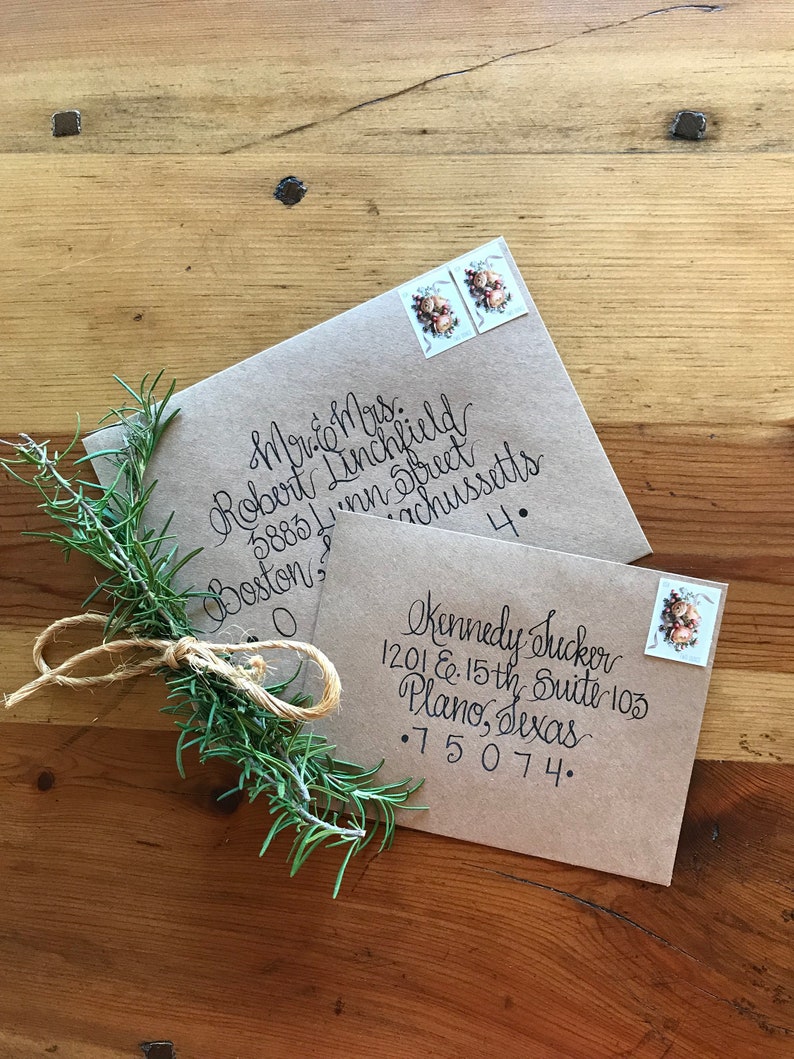 Mr. & Mrs.
Robert Linchfield
3883 Lynn Street
Boston,
• 0 4 •
Kennedy Tucker
1201 E. 15th Suite 103
Plano, Texas
• 7 5 0 7 4 •